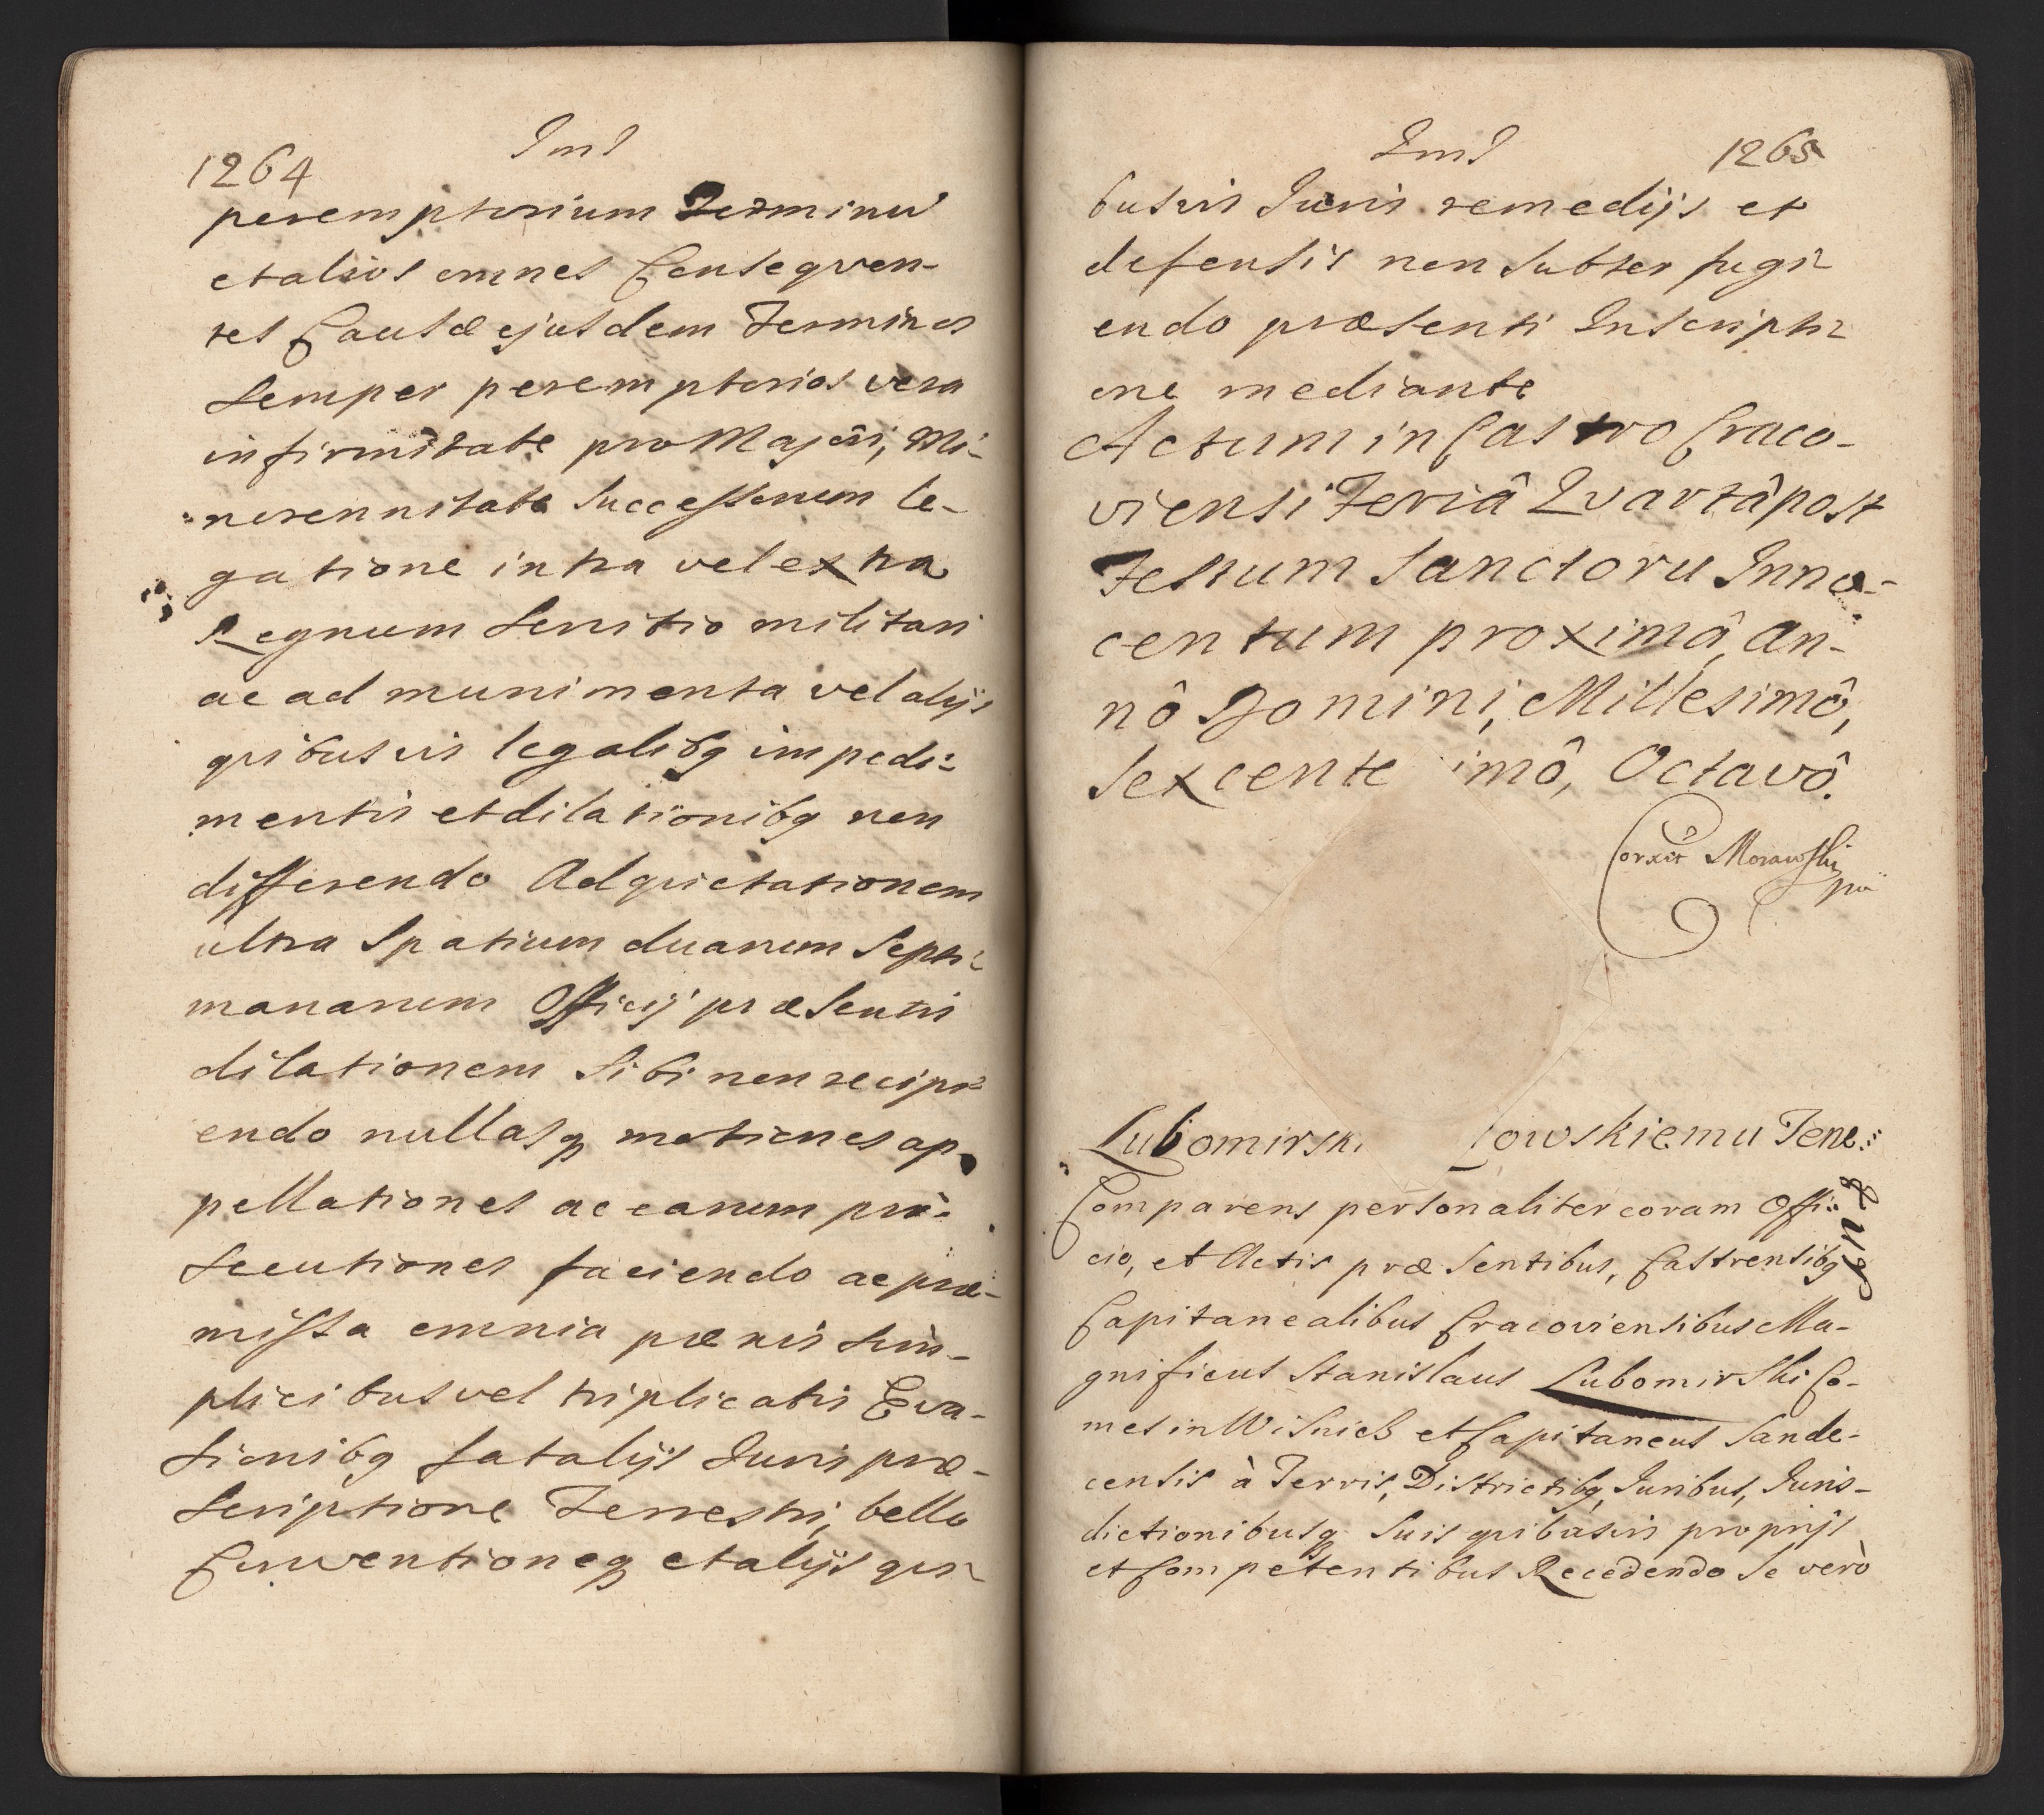 1264
peremptorium Terminū
et alios omnes Consequen-
tes Causæ ejusdem Terminos
semper peremptorios vera
infirmitate pro Majori, Mi-
norennitate Successorum le-
gatione intra vel extra
Regnum Servitio militari
ac ad munimenta vel alijs
quibusvis legalibq impedi-
mentis et dilationibq non
differendo Ad quietationem
ultra Spatium duarum Septi-
manarum Officij præsentis
dilationem Sibi non recipi-
endo nullasq motiones ap-
pellationes ac earum pro-
secutiones faciendo ac præ-
missa omnia pænis sim-
plicibus vel triplicatis Eva-
sionibq fatalijs Juris præ-
scriptione Terrestri, bello
Conventioneq et alijs qui-
1265
busvis Juris remedijs et
defensis non subter fugi-
endo præsenti Inscripti-
one mediante
Actum in Castro Craco-
viensi Feriâ Qvartâ post
Festum Sanctorū Inno-
centum proximâ, An-
nô Domini, Millesimô,
Sexcente imô, Octavô.
Corxit Morawski
Lubomirski łowskiemu Tene:
Comparens personaliter coram Offi-
cio, et Actis præsentibus, Castrensibq
Capitanealibus Cracoviensibus Ma-
gnificus Stanislaus Lubomirski Co-
mes in Wisnicz et Capitaneus Sande-
censis à Terris, Districtibq, Juribus, Juris-
dictionibusq suis quibusvis proprijs
et Competentibus Recedendo Se verò